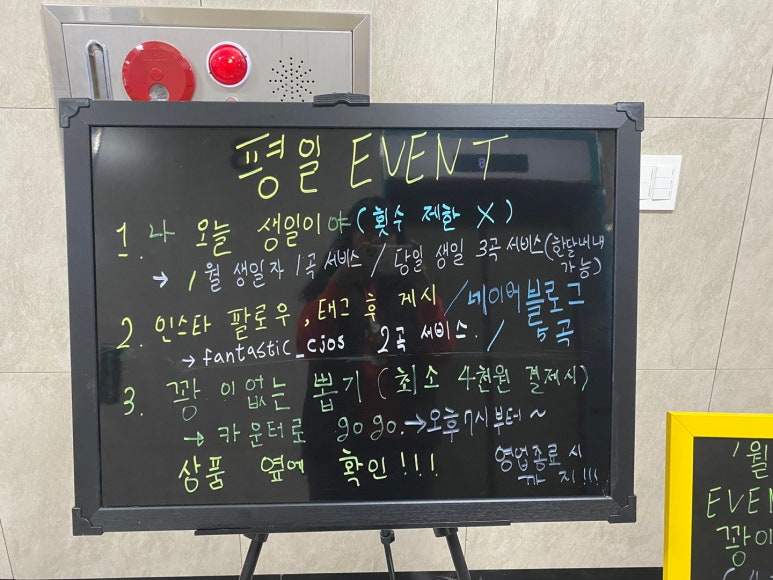 평일 EVENT
1. 나 오늘 생일이야 (횟수 제한 X)
→ 1월 생일자 1곡 서비스 / 당일 생일 3곡 서비스 (한달내내 가능)
2. 인스타 팔로우, 태그 후 게시 / 네이버블로그
→ fantastic_cjos 2곡 서비스. / 5곡
3. 꽝이없는 뽑기 (최소 4천원 결제시)
→ 카운터로 gogo. → 오후7시부터~
상품 옆에 확인!!! 영업종료 시 까지!!!
1월
EVEN
꽝이